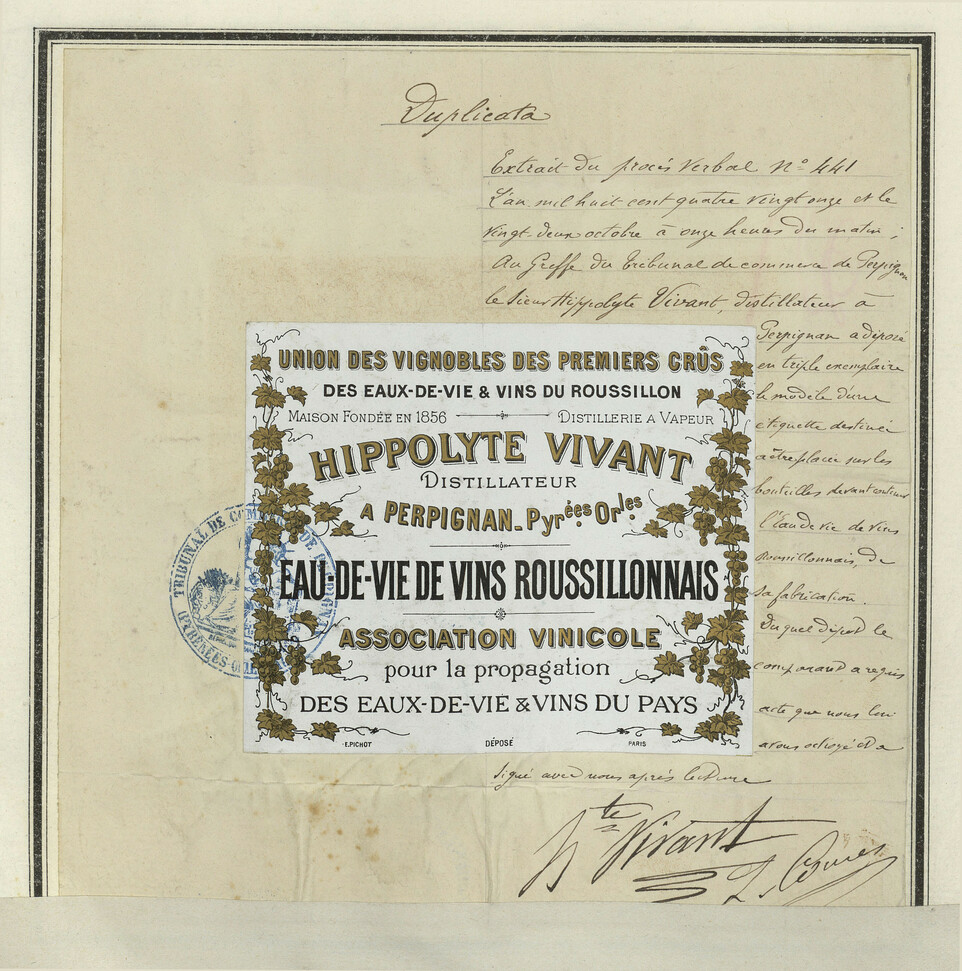 Duplicata
Extrait du procès verbal N° 441
L'an mil huit cent quatre vingt onze et le
vingt-deux octobre à onze heures du matin;
Au Greffe du tribunal de commerce de Perpignan
le Sieur Hippolyte Vivant, distillateur à
Perpignan a déposé
en triple exemplaire
le modèle d'une
étiquette destinée
a être placée sur les
bouteilles devant contenir
l'eau de vie de vins
Roussillonnais, de
sa fabrication.
Duquel dépot le
comparant a requis
acte que nous lui
avons octroyé et a
signé avec nous après lecture
Hte Vivant
UNION DES VIGNOBLES DES PREMIERS CRÛS
DES EAUX-DE-VIE & VINS DU ROUSSILLON
MAISON FONDÉE EN 1856 DISTILLERIE A VAPEUR
HIPPOLYTE VIVANT
DISTILLATEUR
A PERPIGNAN_Pyrées Orles
EAU-DE-VIE DE VINS ROUSSILLONNAIS
ASSOCIATION VINICOLE
pour la propagation
DES EAUX-DE-VIE & VINS DU PAYS
E.PICHOT DÉPOSÉ PARIS
TRIBUNAL DE COMMERCE DE PERPIGNAN
(PYRÉNÉES-ORIENTALES)